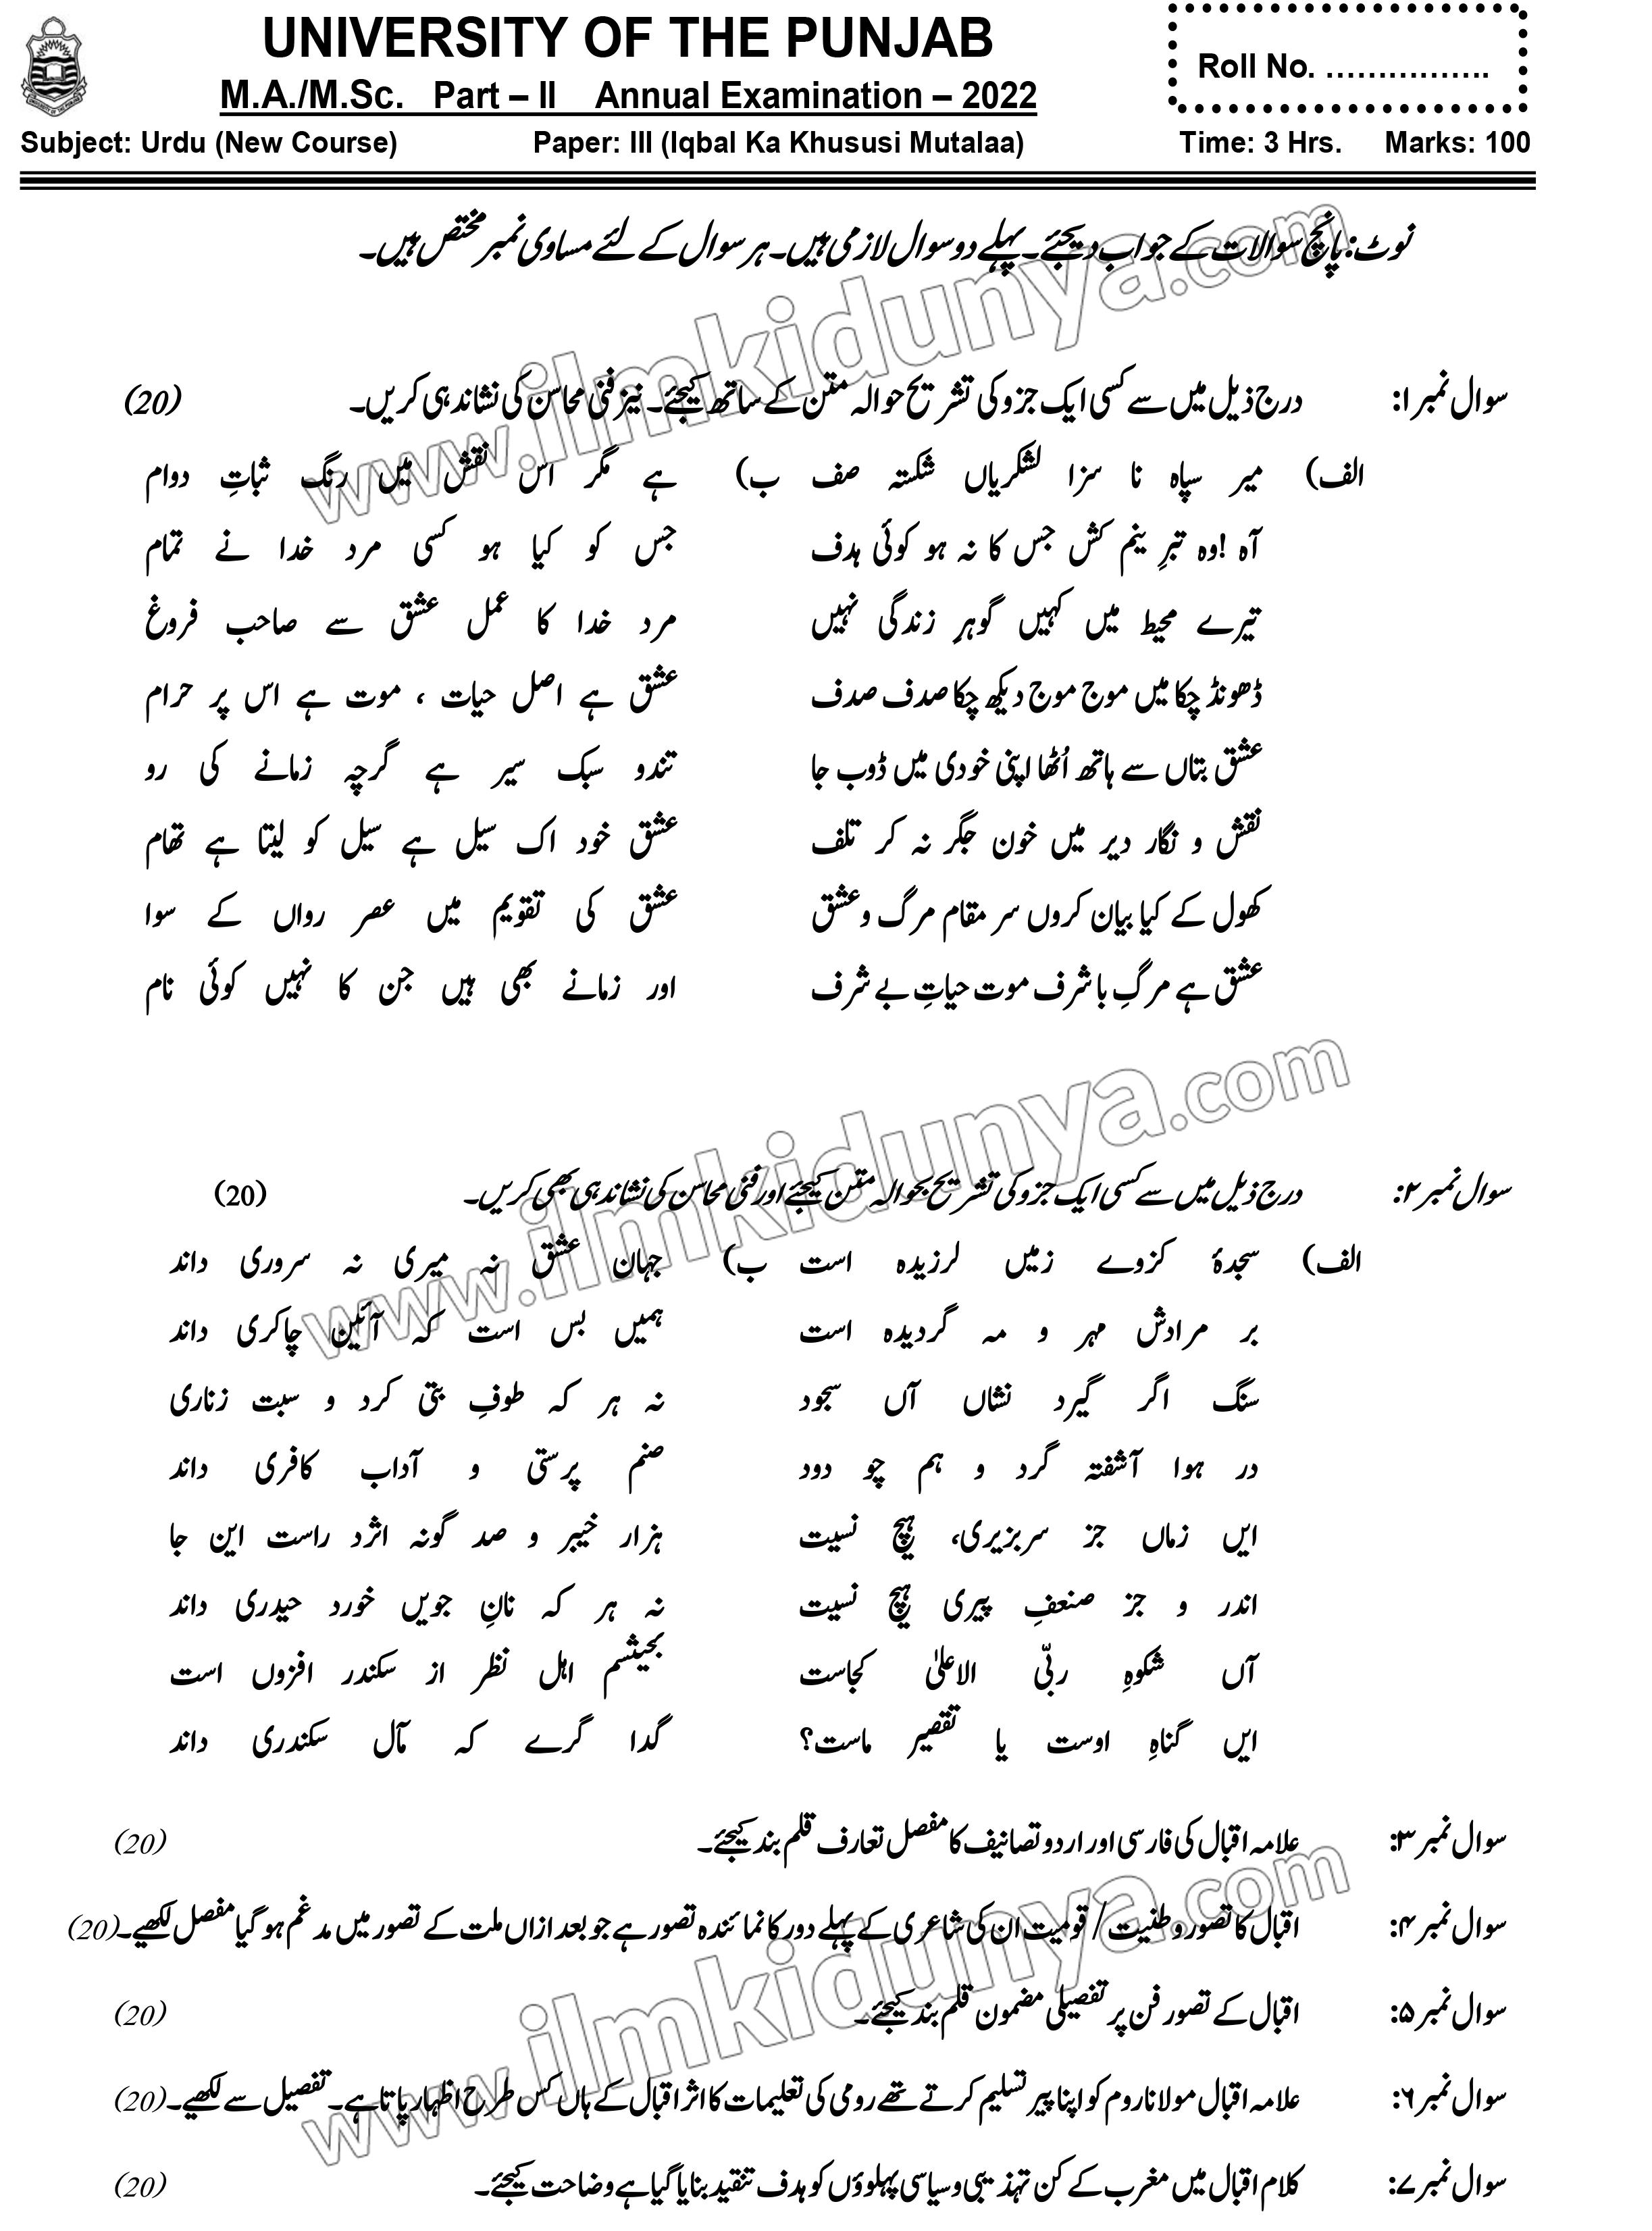 UNIVERSITY OF THE PUNJAB
M.A./M.Sc. Part – II Annual Examination – 2022
Roll No. ................
Subject: Urdu (New Course) Paper: III (Iqbal Ka Khususi Mutalaa) Time: 3 Hrs. Marks: 100
نوٹ: پانچ سوالات کے جواب دیجئے۔ پہلے دو سوال لازمی ہیں۔ ہر سوال کے لئے مساوی نمبر مختص ہیں۔
سوال نمبر ۱: درج ذیل میں سے کسی ایک جزو کی تشریح حوالہ متن کے ساتھ کیجئے۔ نیز فنی محاسن کی نشاندہی کریں۔ (20)
الف) میر سپاہ نا سزا لشکریاں شکستہ صف ب) ہے مگر اس نقش میں رنگ ثباتِ دوام
آہ !وہ تبرِ ینم کش جس کا نہ ہو کوئی ہدف جس کو کیا ہو کسی مرد خدا نے تمام
تیرے محیط میں کہیں گوہرِ زندگی نہیں مرد خدا کا عمل عشق سے صاحب فروغ
ڈھونڈ چکا میں موج موج دیکھ چکا صدف صدف عشق ہے اصل حیات ، موت ہے اس پر حرام
عشق بتاں سے ہاتھ اُٹھا اپنی خودی میں ڈوب جا تندو سبک سیر ہے گرچہ زمانے کی رو
نقش و نگار دیر میں خون جگر نہ کر تلف عشق خود اک سیل ہے سیل کو لیتا ہے تھام
کھول کے کیا بیان کروں سر مقام مرگ و عشق عشق کی تقویم میں عصر رواں کے سوا
عشق ہے مرگِ با شرف موت حیاتِ بے شرف اور زمانے بھی ہیں جن کا نہیں کوئی نام
سوال نمبر ۲: درج ذیل میں سے کسی ایک جزو کی تشریح بحوالہ متن کیجئے اور فنی محاسن کی نشاندہی بھی کریں۔ (20)
الف) سجدۂ کزوے زمیں لرزیدہ است ب) جہان عشق نہ میری نہ سروری داند
بر مرادش مہر و مہ گردیدہ است ہمیں بس است کہ آئین چاکری داند
سنگ اگر گیرد نشاں آں سجود نہ ہر کہ طوفِ بتی کرد و سبت زناری
در ہوا آشفتہ گرد و ہم چو دود صنم پرستی و آداب کافری داند
ایں زماں جز سربزیری، ہیچ نسیت ہزار خیبر و صد گونہ اثرد راست این جا
اندر و جز صنعفِ پیری ہیچ نسیت نہ ہر کہ نانِ جویں خورد حیدری داند
آں شکوہِ ربّی الاعلیٰ کجاست بحیثسم اہل نظر از سکندر افزوں است
ایں گناہِ اوست یا تقصیر ماست؟ گدا گرے کہ مآل سکندری داند
سوال نمبر ۳: علامہ اقبال کی فارسی اور اردو تصانیف کا مفصل تعارف قلم بند کیجئے۔ (20)
سوال نمبر ۴: اقبال کا تصور وطنیت / قومیت ان کی شاعری کے پہلے دور کا نمائندہ تصور ہے جو بعد ازاں ملت کے تصور میں مدغم ہو گیا مفصل لکھیے۔ (20)
سوال نمبر ۵: اقبال کے تصور فن پر تفصیلی مضمون قلم بند کیجئے۔ (20)
سوال نمبر ۶: علامہ اقبال مولانا روم کو اپنا پیر تسلیم کرتے تھے رومی کی تعلیمات کا اثر اقبال کے ہاں کس طرح اظہار پاتا ہے۔ تفصیل سے لکھیے۔ (20)
سوال نمبر ۷: کلام اقبال میں مغرب کے کن تہذیبی و سیاسی پہلوؤں کو ہدف تنقید بنایا گیا ہے وضاحت کیجئے۔ (20)
www.ilmkidunya.com
www.ilmkidunya.com
www.ilmkidunya.com